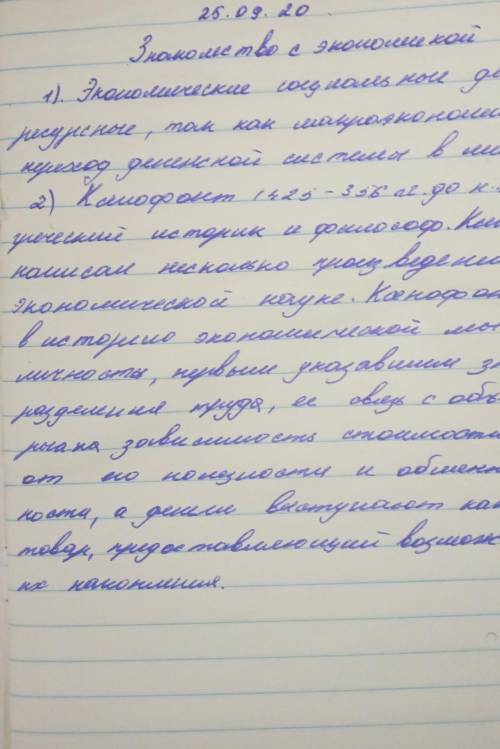 25.09.20
Знакомство с экономикой
1). Экономические социальные
ресурсные, так как макроэконом
переход денежной системы в
2) Ксенофонт (425-356 гг. до н.
греческий историк и философ. Ксе
написал несколько произведени
экономической науке. Ксенофон
в историю экономической мы
личность, первым указавшим зн
разделения труда, ее связь с объ
рынка зависимость стоимости
от его полезности и обменн
ности, а деньги выступают как
товар, предоставляющий возмож
их накопления.